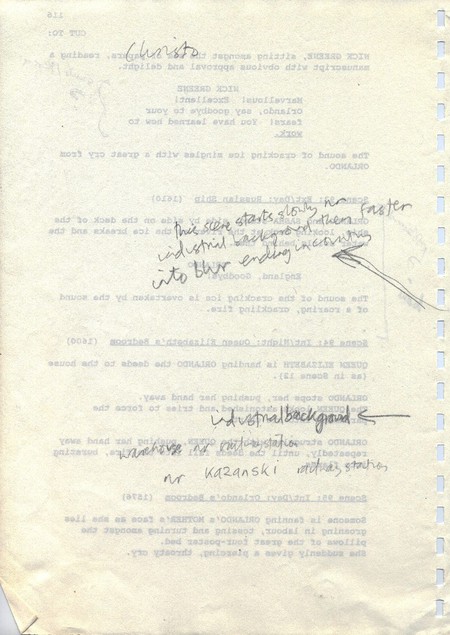 110
CUT TO:
Christo
NICK GREENE, sitting amongst the
papers, reading a
manuscript with obvious approval and delight.
NICK GREENE
Marvellous! Excellent!
Orlando, say goodbye to your
fears! You have learned how to
work.
The sound of cracking ice mingles with a great cry from
ORLANDO.
Scene Ext/Day: Russian Ship (1610)
this scene starts slowly nr
side by side on the deck of the
industrial background then faster
the ice breaks and the
into blur ending in
England, Goodbye!
The sound of the cracking ice is overtaken by the sound
of a roaring, crackling fire.
Scene 94: Int/Night: Queen Elizabeth's Bedroom (1600)
QUEEN ELIZABETH is handing ORLANDO the deeds to the house
(as in Scene 12).
ORLANDO stops her, pushing her hand away.
The QUEEN looks astonished and tries to force the
industrial background
ORLANDO QUEEN, pushing her hand away
warehouse nr station
repeatedly, until the bursting
nr KAZANSKI railway station
Scene 95: Int/Day: Orlando's Bedroom (1576)
Someone is fanning ORLANDO's MOTHER's face as she lies
groaning in labour, tossing and turning amongst the
pillows of the great four-poster bed.
She suddenly gives a piercing, throaty cry.